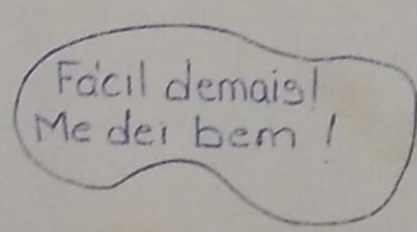 Fácil demais!
Me dei bem !